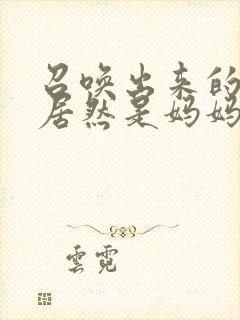 召唤出来的
居然是妈妈
雲霓